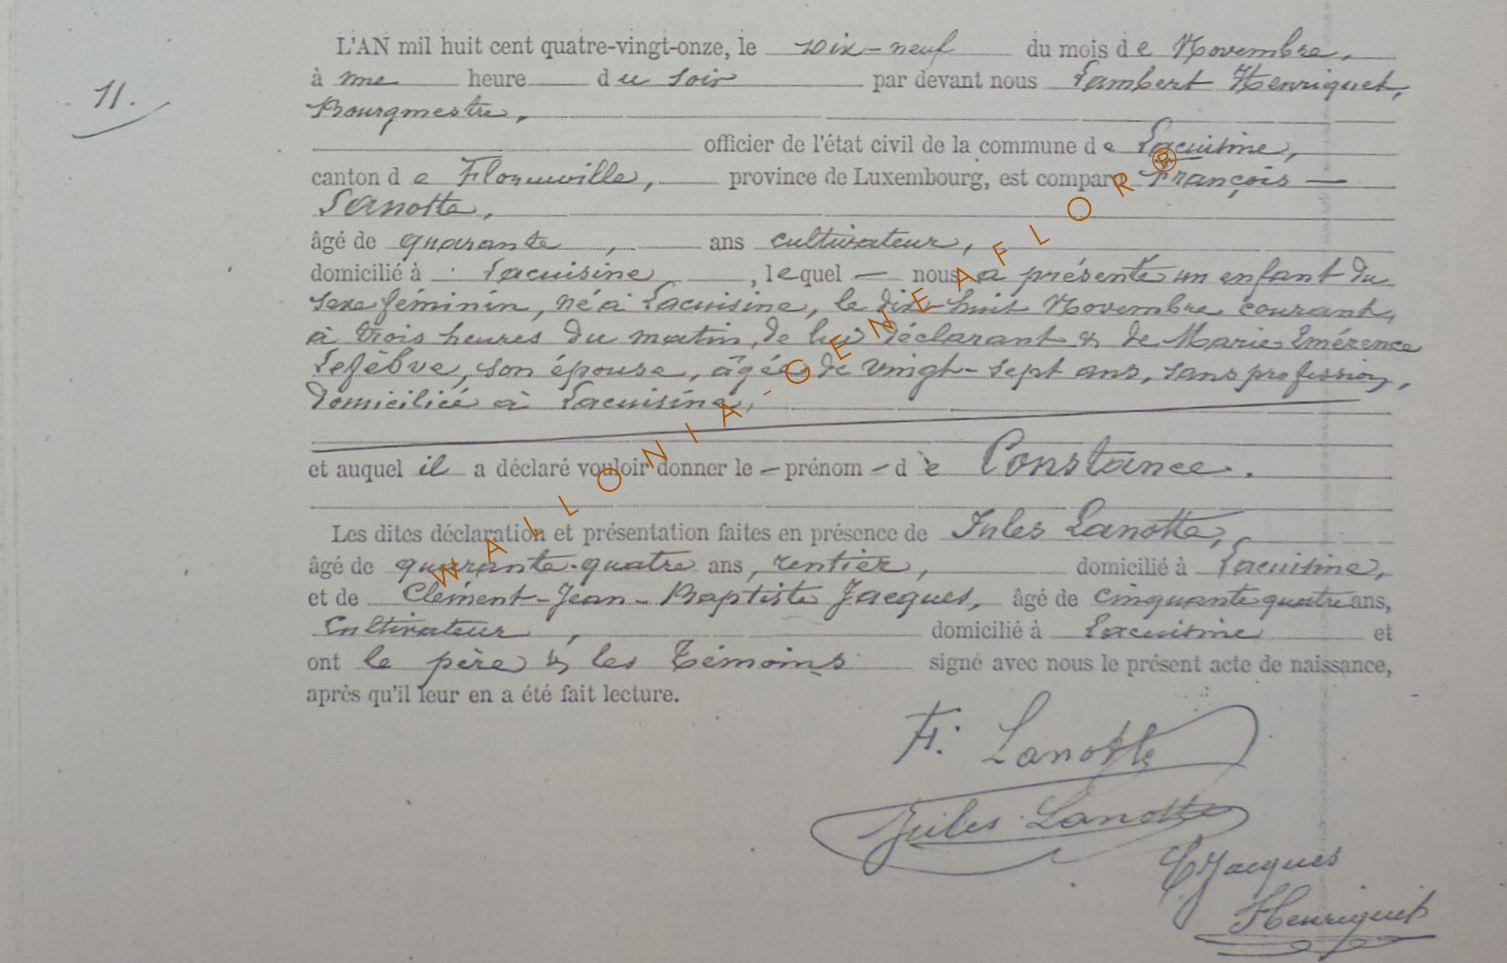 11.
L'AN mil huit cent quatre-vingt-onze, le dix-neuf du mois de Novembre,
à une heure du soir par devant nous Lambert Henriquet,
Bourgmestre,
officier de l'état civil de la commune de Lacuisine,
canton de Florenville, province de Luxembourg, est comparu François
Lanotte,
âgé de quarante, ans cultivateur,
domicilié à Lacuisine, lequel nous a présenté un enfant du
sexe féminin, né à Lacuisine, le dix-huit Novembre courant,
à trois heures du matin, de lui déclarant & de Marie Emérence
Lefèbve, son épouse, âgée de vingt-sept ans, sans profession,
domiciliée à Lacuisine,
et auquel il a déclaré vouloir donner le prénom de Constance.
Les dites déclaration et présentation faites en présence de Jules Lanotte,
âgé de quarante-quatre ans, rentier, domicilié à Lacuisine,
et de Clément-Jean-Baptiste Jacques, âgé de cinquante quatre ans,
Cultivateur, domicilié à Lacuisine et
ont le père & les témoins signé avec nous le présent acte de naissance,
après qu'il leur en a été fait lecture.
F. Lanotte
Jules Lanotte
C Jacques
Henriquet
WALLONIA-GENEAFLOR®